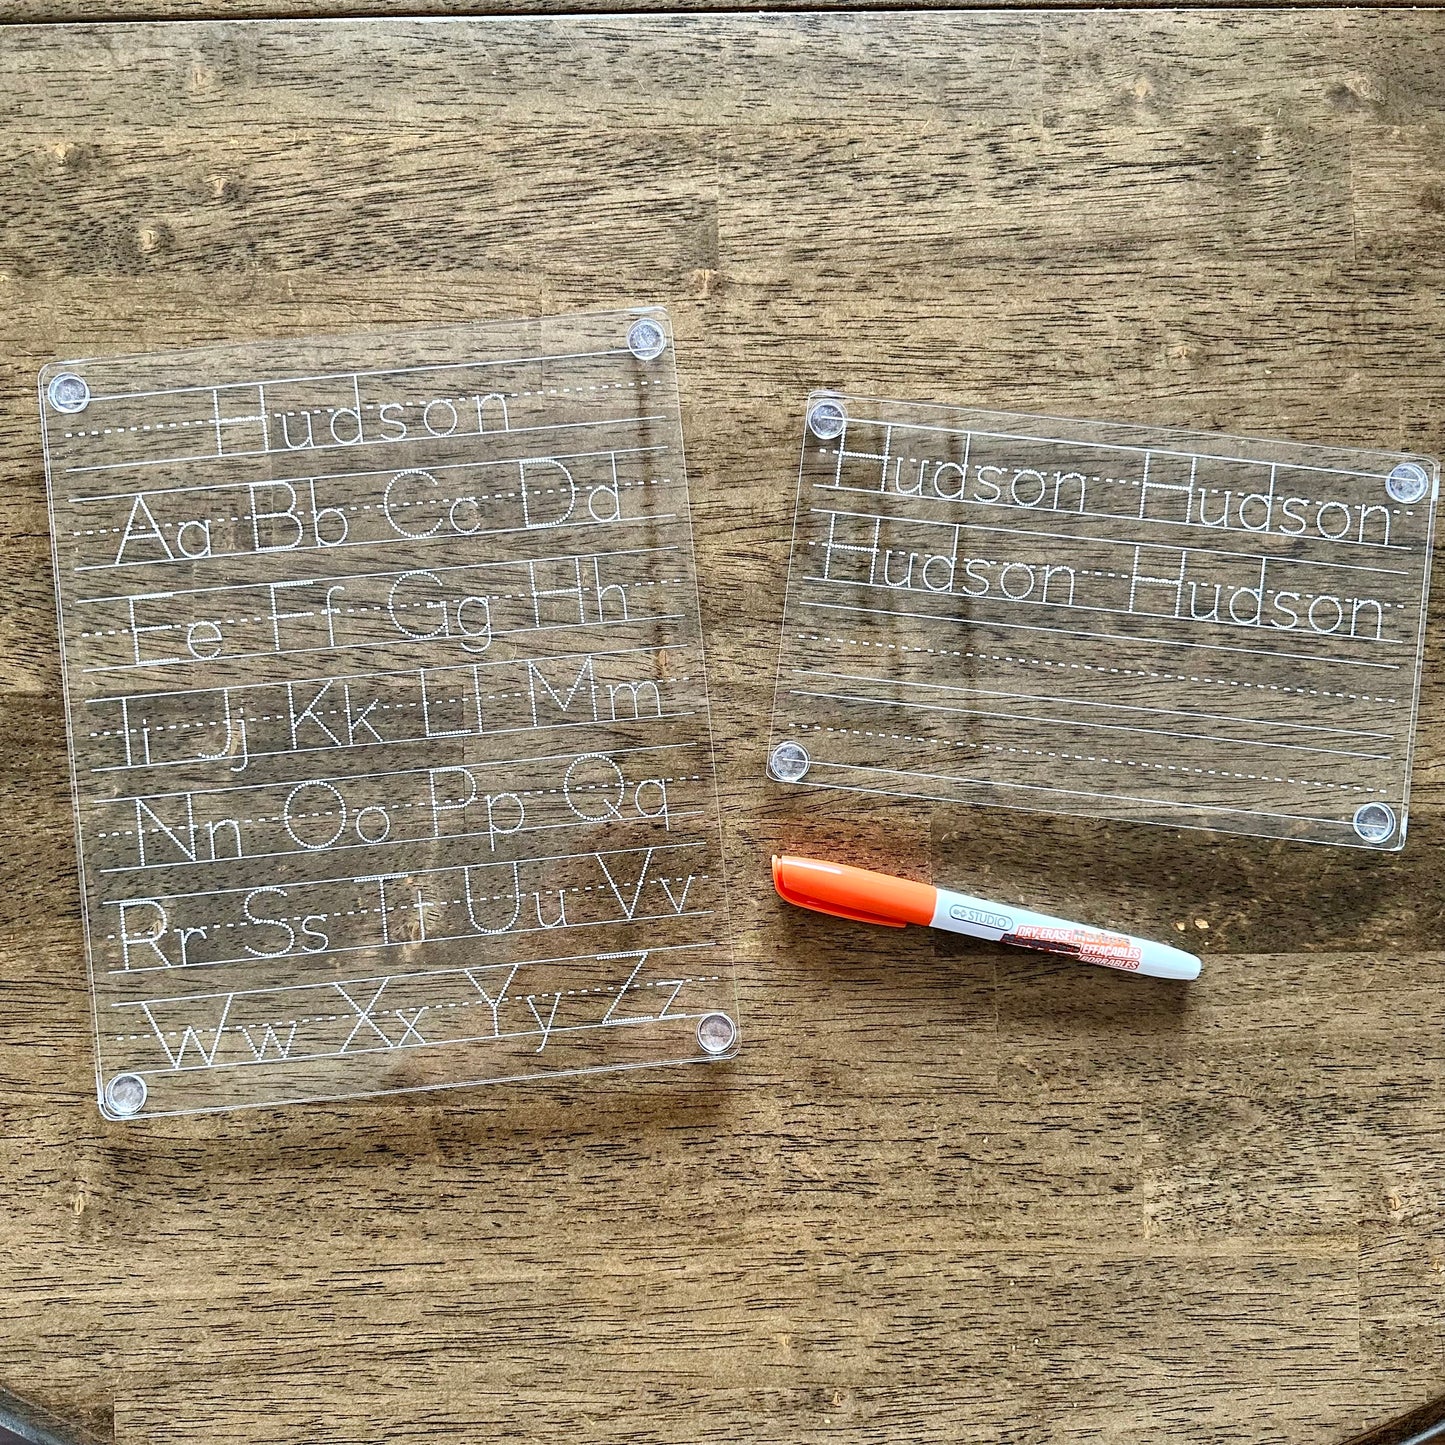 Hudson
Aa Bb Cc Dd
Ee Ff Gg Hh
Ii Jj Kk Ll Mm
Nn Oo Pp Qq
Rr Ss Tt Uu Vv
Ww Xx Yy Zz
Hudson Hudson
Hudson Hudson
STUDIO
DRY-ERASE
EFFAÇABLES
BORRABLES